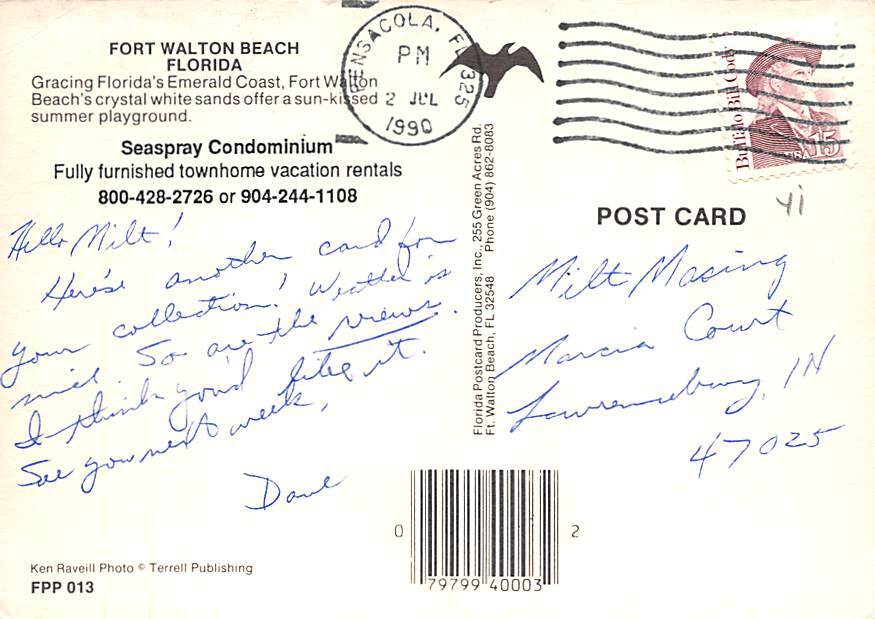 FORT WALTON BEACH
FLORIDA
Gracing Florida's Emerald Coast, Fort Walton
Beach's crystal white sands offer a sun-kissed
summer playground.
Seaspray Condominium
Fully furnished townhome vacation rentals
800-428-2726 or 904-244-1108
Hello Milt!
Here's another card for
your collection! Weather is
nice. So are the views.
I think you'd like it.
See you next week,
Dave
Ken Raveill Photo © Terrell Publishing
FPP 013
PENSACOLA, FL 325
PM
2 JUL
1990
Buffalo Bill Cody
USA 15
41
Florida Postcard Producers, Inc., 255 Green Acres Rd.
Ft. Walton Beach, FL 32548 Phone (904) 862-8083
POST CARD
Milt Masing
Marcia Court
Lawrenceburg, IN
47025
0 79799 40003 2